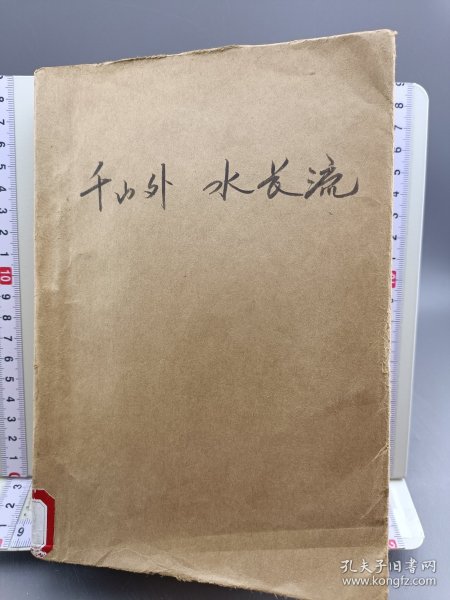 千山外 水长流
孔夫子旧书网
www.kongfz.com